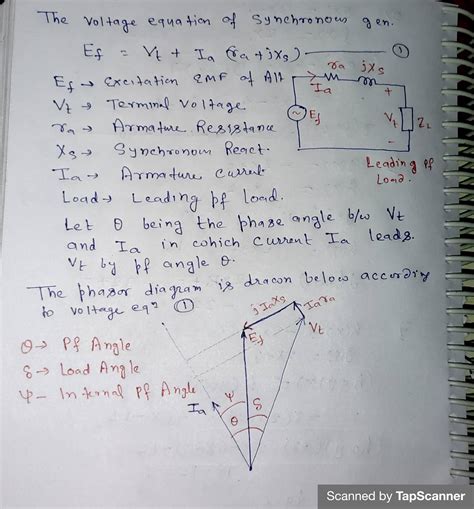 The Voltage equation of Synchronous gen.
Ef = Vt + Ia (ra + jXs) ①
Ef → Excitation EMF of Alt
Vt → Terminal Voltage
ra → Armature Resistance
Xs → Synchronous React.
Ia → Armature current
Load → Leading pf load.
ra jXs
Ia
+
~ Ef
Vt
ZL
-
Leading pf
Load.
Let θ being the phase angle b/w Vt
and Ia in which current Ia leads
Vt by pf angle θ.
The phasor diagram is drawn below accordiry
to voltage eqn ①
θ → Pf Angle
δ → Load Angle
ψ - Internal Pf Angle
jIaXs
Iara
Ef
Vt
Ia
ψ
θ
δ
Scanned by TapScanner